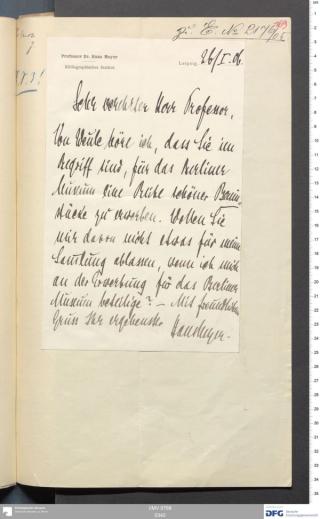 zu E. No 2176/05
Professor Dr. Hans Meyer
Bibliographisches Institut.
Leipzig, 26/I. 06.
Sehr verehrter Herr Professor,
Von Weule höre ich, dass Sie im
Begriff sind, für das Berliner
Museum eine Reihe schöner Benin-
stücke zu erwerben. Wollen Sie
mir davon nicht etwas für meine
Sammlung ablassen, wenn ich mich
an der Erwerbung für das Berliner
Museum beteilige? – Mit freundlichem
Gruss Ihr ergebenster Hans Meyer.
DFG